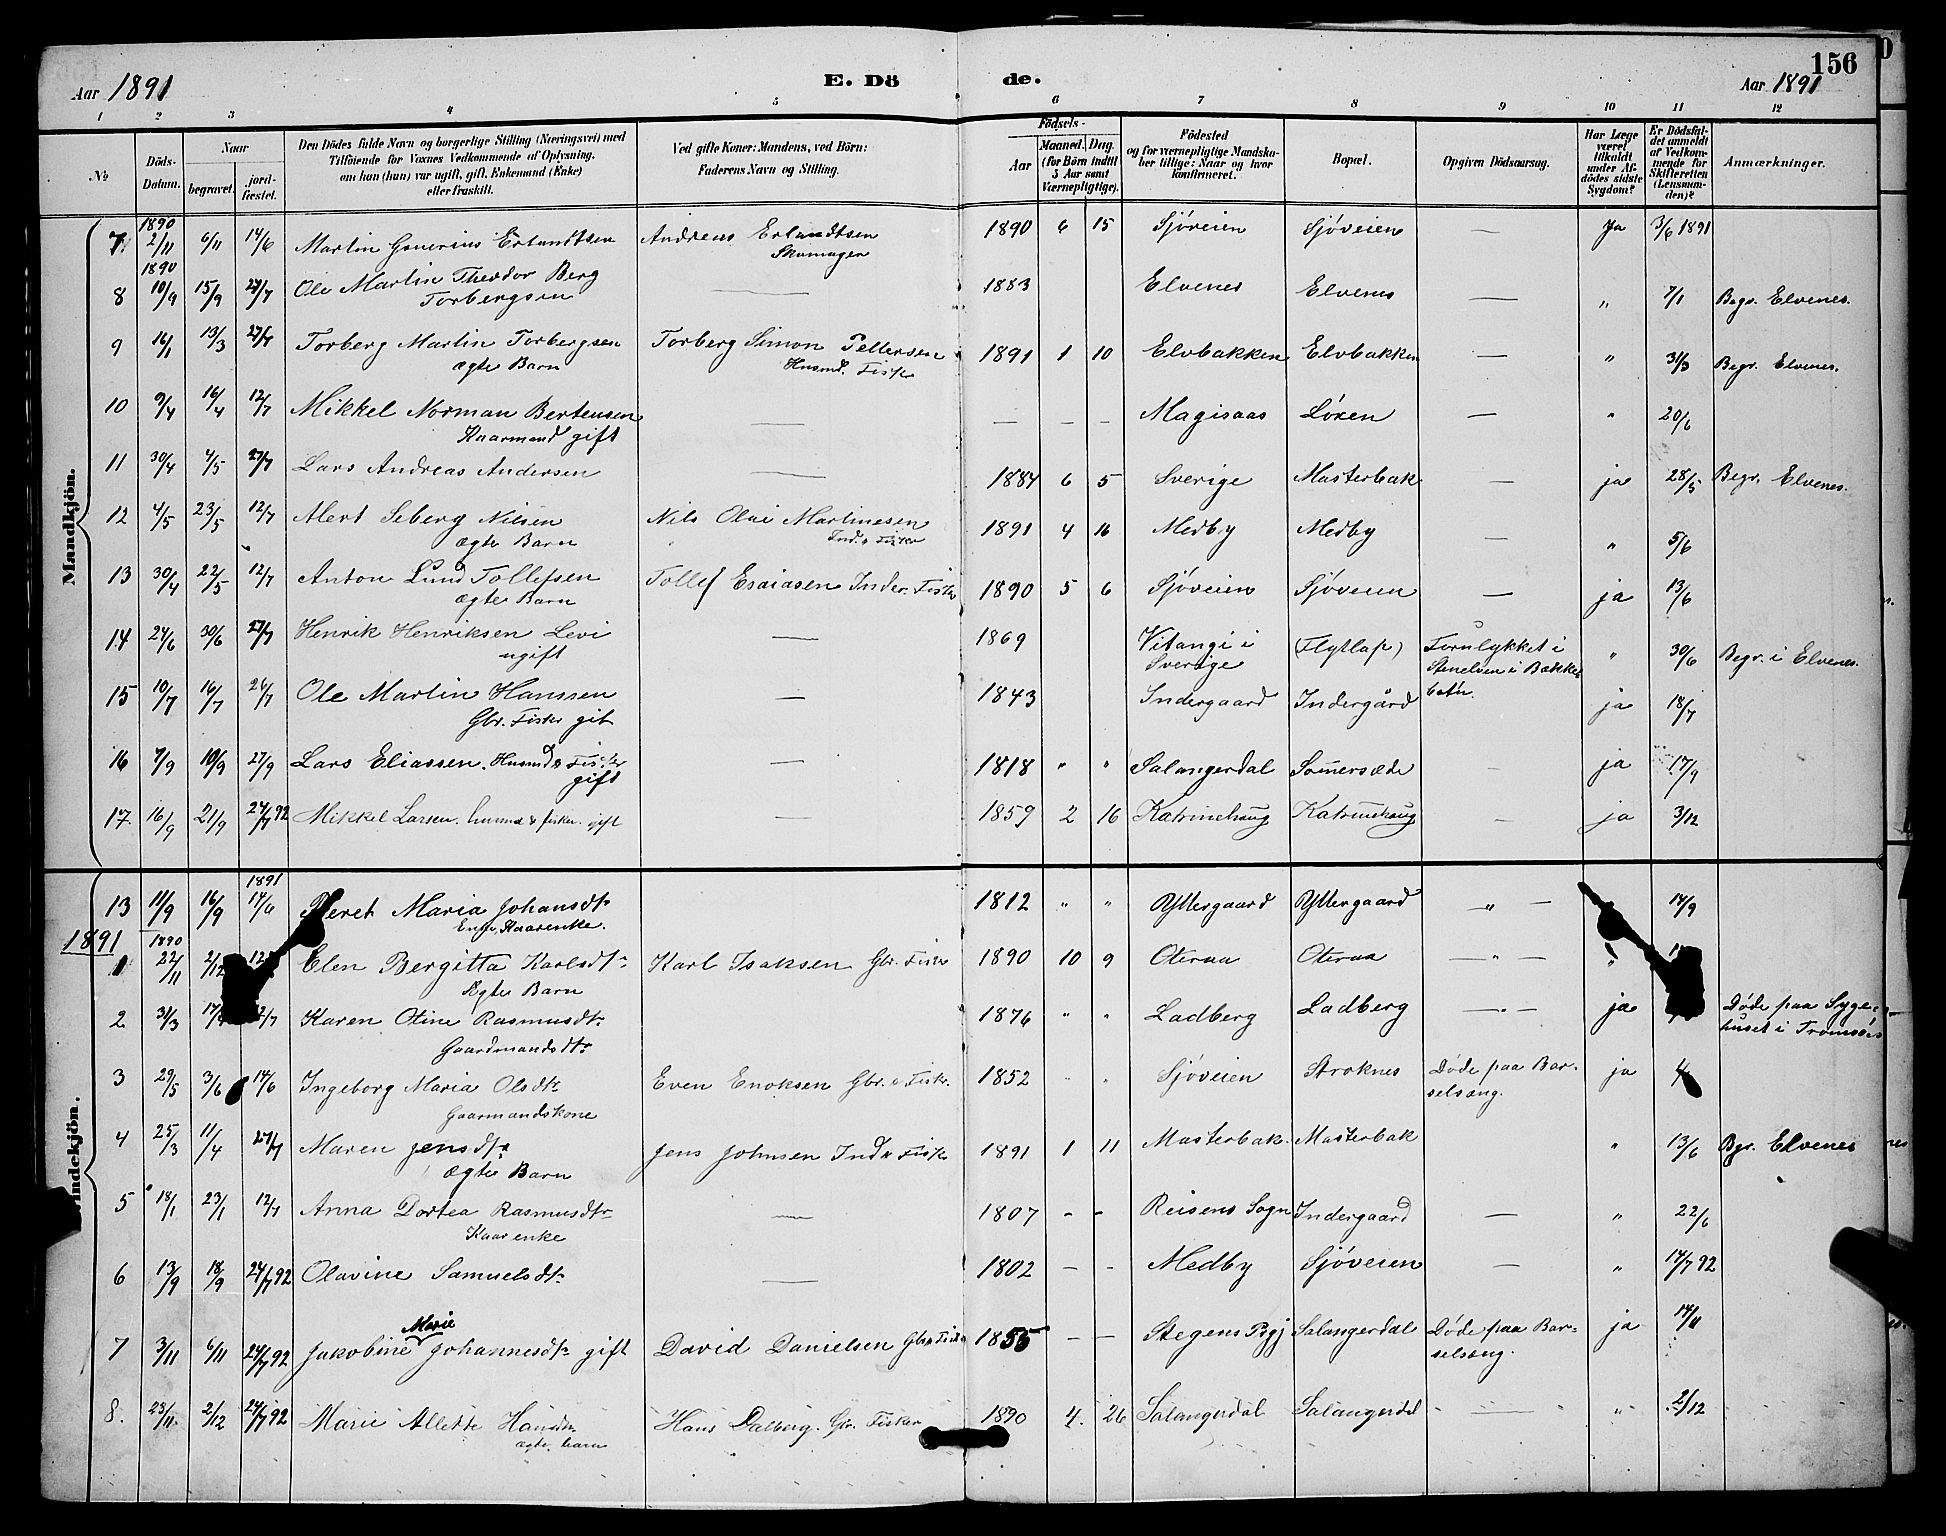 Aar 1891
E. Dö
de.
156
Aar 1891
1 2 3 4 5 6 7 8 9 10 11 12
No
Döds-Datum.
Naar
begravet.
jordfæstet.
Den Dödes fulde Navn og borgerlige Stilling (Næringsvei) med
Tilföiende for Voxnes Vedkommende af Oplysning,
om han (hun) var ugift, gift, Enkemand (Enke)
eller fraskilt.
Ved gifte Koner: Mandens, ved Börn:
Faderens Navn og Stilling.
Födsels-
Aar
Maaned. Dag.
(for Börn indtil
5 Aar samt
Værnepligtige).
Födested
og for værnepligtige Mandskaber tillige: Naar og hvor
konfirmeret.
Bopæl.
Opgiven Dödsaarsag.
Har Læge
været
tilkaldt
under Afdödes sidste
Sygdom?
Er Dödsfaldet anmeldt
af Vedkommende for
Skifteretten
(Lensmanden)?
Anmærkninger.
Mandkjön.
1890
7 2/11 6/11 14/6 Martin Erlandtsen Andreas Erlandtsen 1890 6 15 Sjöveien Sjöveien — Ja 3/6 1891
Skomager
1890
8 10/9 15/9 27/7 Ole Martin Theodor Berg — 1883 Elvenes Elvenes — " 7/1 Begr. Elvenes.
Torbergsen
9 16/1 13/3 27/7 Torberg Martin Torbergsen Torberg Simon Pettersen 1891 1 10 Elvbakken Elvbakken — " 31/3 Begr. Elvenes.
ægte Barn Husmd. Fisker
10 9/4 16/4 12/7 Mikkel Norman Bertensen — — — — Magisaas Löxen — " 20/6
Kaarmand gift
11 30/4 4/5 27/7 Lars Andreas Andersen — 1884 6 5 Sverige Masterbak — ja 28/5 Begr. Elvenes.
12 4/5 23/5 12/7 Alert Seberg Nilsen Nils Olai Martinesen 1891 4 16 Medby Medby — " 5/6
ægte Barn Ind. o Fisker
13 30/4 22/5 12/7 Anton Lund Tollefsen Tollef Esaiasen Inder. Fisker 1890 5 6 Sjöveien Sjöveien — ja 13/6
ægte Barn
14 24/6 30/6 27/7 Henrik Henriksen Levi — 1869 Vitangi i Sverige (Flytlap) Forulykket i Stenelven i Bakkebotn. " 30/6 Begr. i Elvenes.
ugift
15 10/7 16/7 26/7 Ole Martin Hanssen — 1843 Indergaard Indergård ja 18/7
Gbr. Fisker gift
16 7/9 10/9 27/9 Lars Eliassen. Husmd o Fisker — 1818 " " Salangerdal Somersæde — ja 17/9
gift
17. 16/9 21/9 24/7 92 Mikkel Larsen. husmd & fisker. gift — 1859 2 16 Katrinehaug Katrinehaug — ja 3/12
Kvindekjön.
1891
13 11/9 16/9 14/6 Beret Maria Johansdtr 1812 " " Yttergaard Yttergaard — " — 14/9
Enke, Kaarenke.
1891
1890
1 22/11 2/12 Elen Bergitta Karlsdtr Karl Isaksen Gbr. Fisker 1890 10 9 Oteraa Oteraa — " — "
Ægte Barn
2 31/3 Karen Otine Rasmusdtr 1876 " " Ladberg Ladberg — " — ja Döde paa Sygehuset i Tromsö
Gaardmandsdtr
3 29/5 3/6 14/6 Ingeborg Maria Olsdtr Even Enoksen Gbr. o Fisker. 1852 " " Sjöveien Stroknes Döde paa Barselsæng. ja
Gaarmandskone
4 25/3 11/4 27/7 Maren Jensdtr Jens Johnsen Ind o Fisker 1891 1 11 Masterbak. Masterbak " 13/6 Bgr. Elvenes
ægte Barn
5 18/1 23/1 12/7 Anna Dortea Rasmusdtr — 1807 – – Reisens Sogn Indergaard — " 22/6
Kaarenke
6 13/9 18/9 24/7 92 Olavine Samuelsdtr — 1802 – – Medby Sjöveien — " 14/7 92
7 3/11 6/11 24/7 92 Jakobine Marie Johannesdtr gift David Danielsen Gbr o Fisker 1855 – – Stegens Pgj Salangerdal Döde paa Barselsæng. ja 14/11
8. 23/11 2/12 24/7 92 Marie Allette Hansdtr Hans Dalberg. Gbr. Fisker 1890 4. 26 Salangerdal Salangerdal — " 2/12
ægte barn